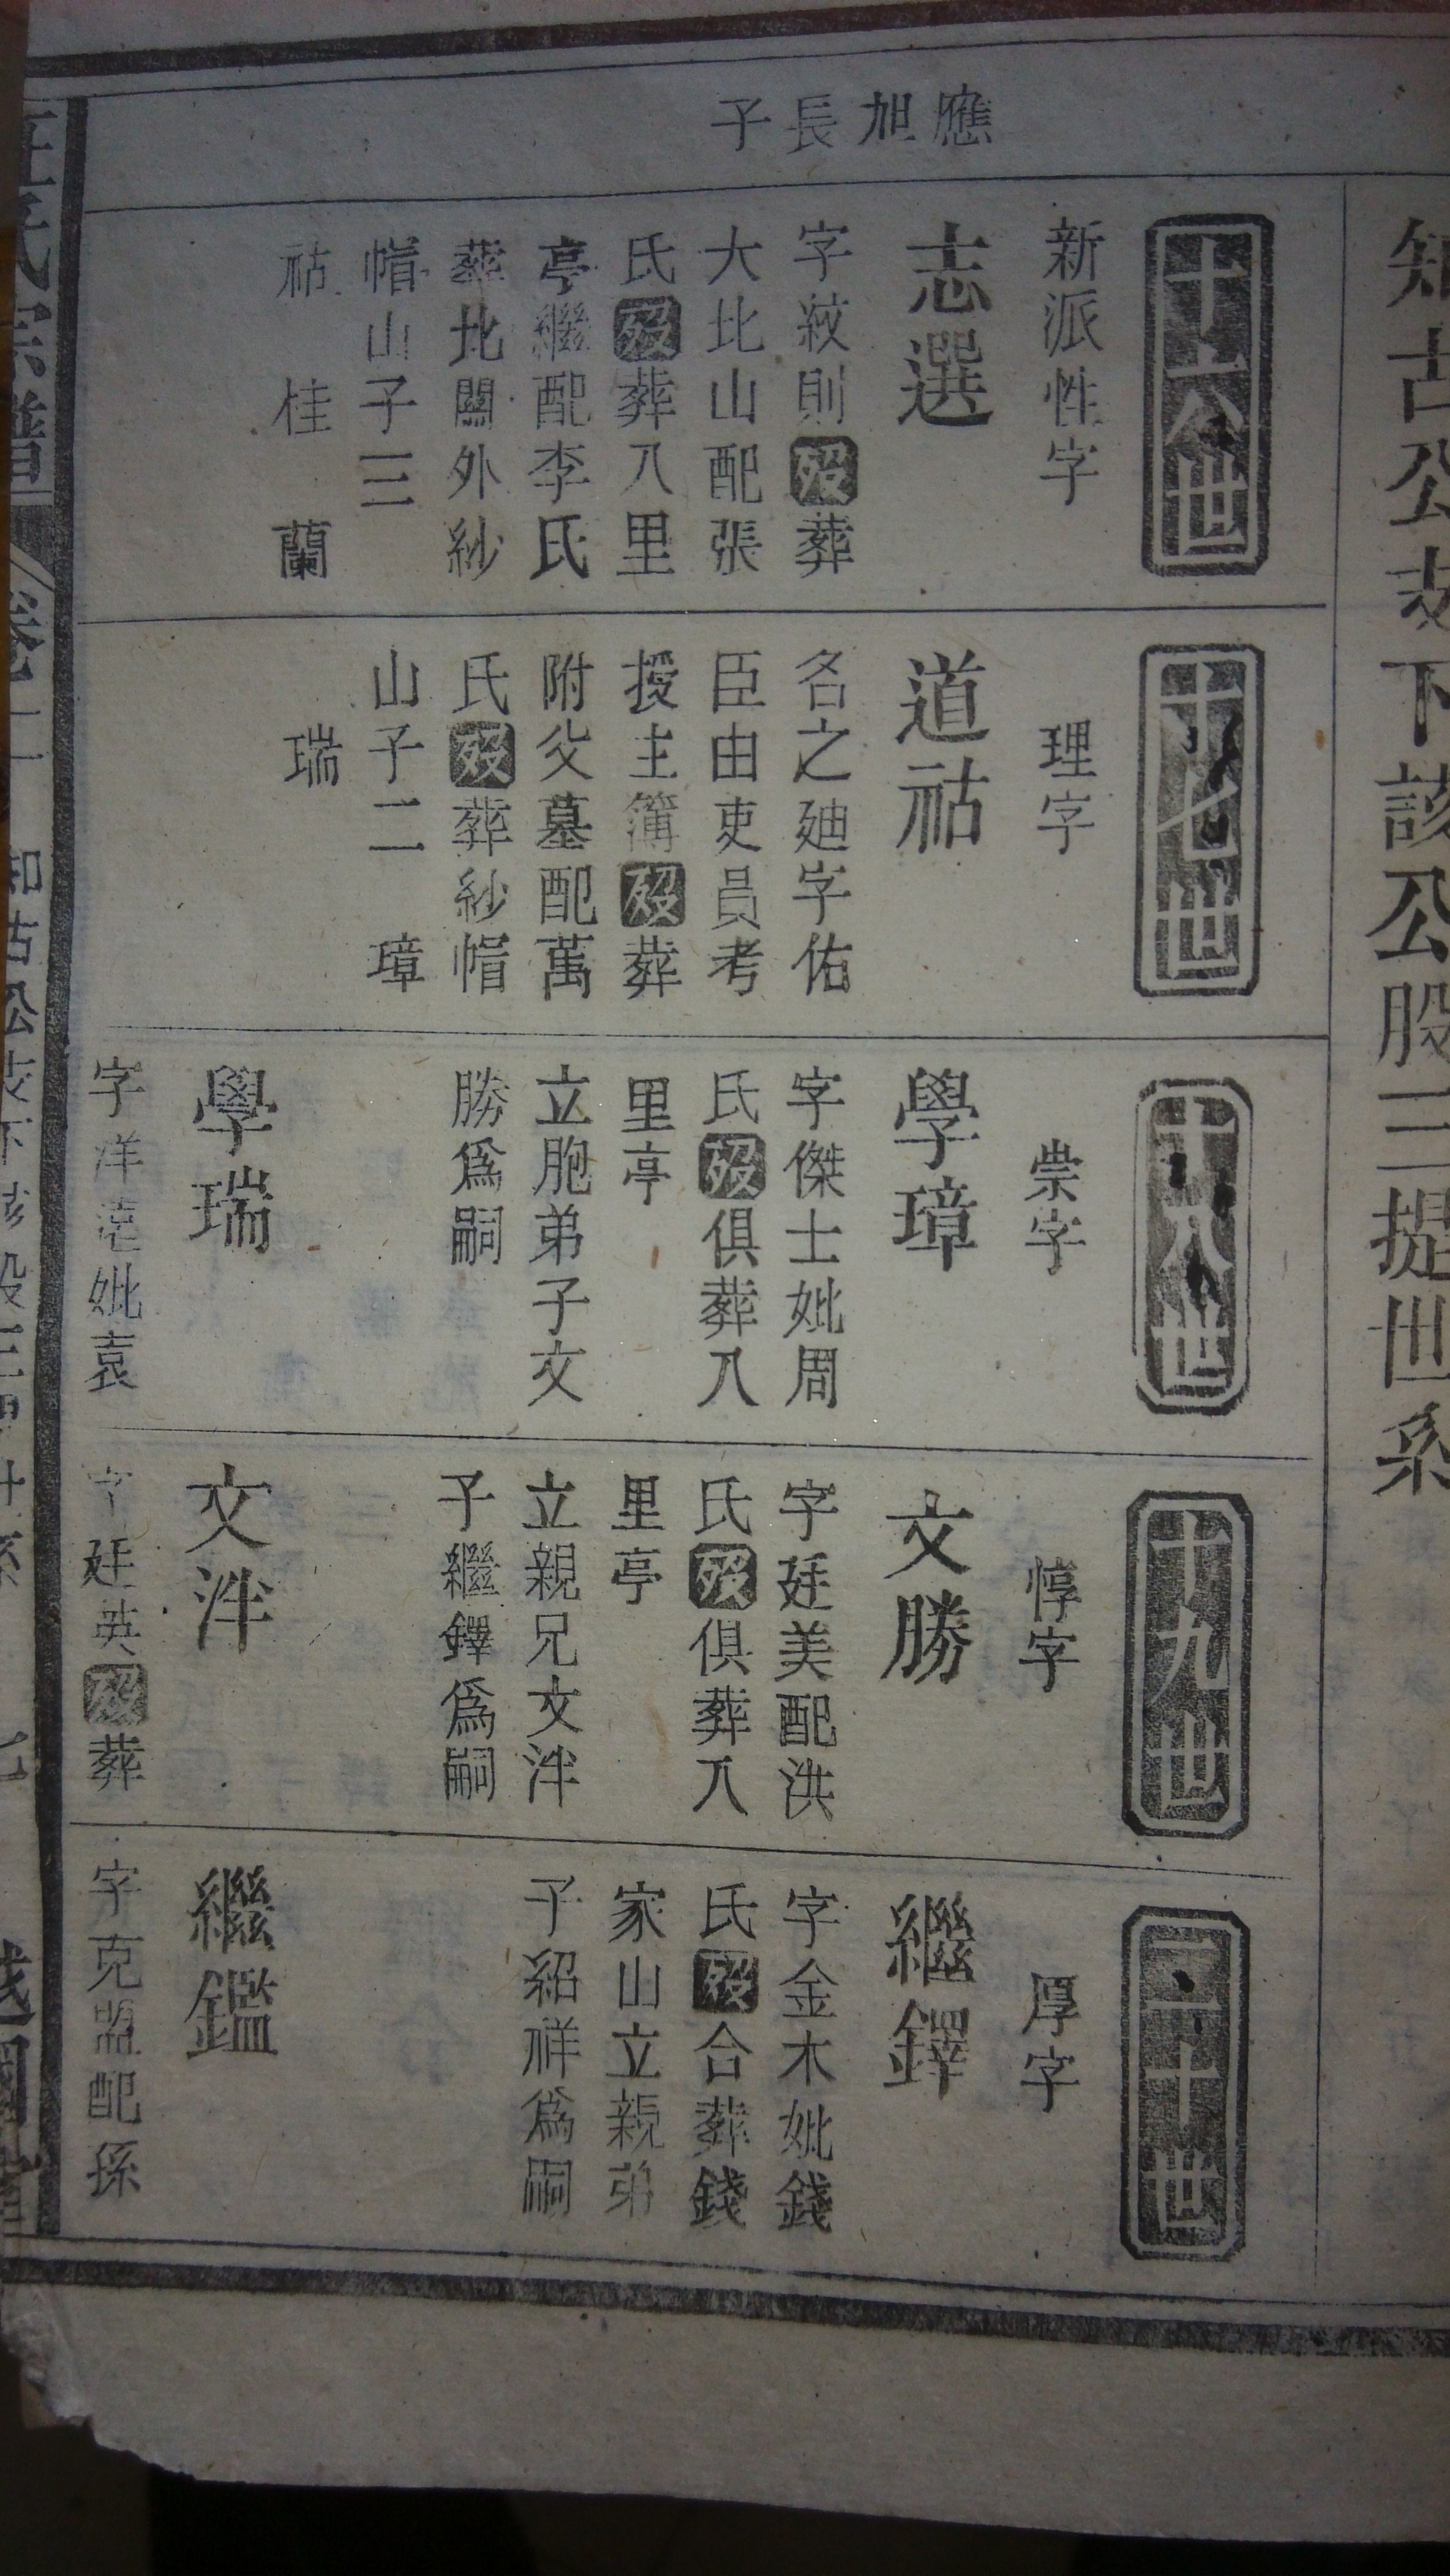 知古公支下該公股三提世系
應旭長子
十六世
新派性字
志選
字紋則歿葬
大北山配張
氏歿葬八里
亭繼配李氏
葬北關外紗
帽山子三
祜 桂 蘭
十七世
理字
道祜
名之廸字佑
臣由吏員考
授主簿歿葬
附父墓配萬
氏歿葬紗帽
山子二 璋
瑞
十八世
崇字
學璋
字傑士妣周
氏歿俱葬八
里亭
立胞弟子文
勝爲嗣
學瑞
字洋遠妣袁
十九世
惇字
文勝
字廷美配洪
氏歿俱葬八
里亭
立親兄文泮
子繼鐸爲嗣
文泮
字廷英歿葬
二十世
厚字
繼鐸
字金木妣錢
氏歿合葬錢
家山立親弟
子紹祥爲嗣
繼鑑
字克盟配孫
汪氏宗譜
知古公支下該股三提世系